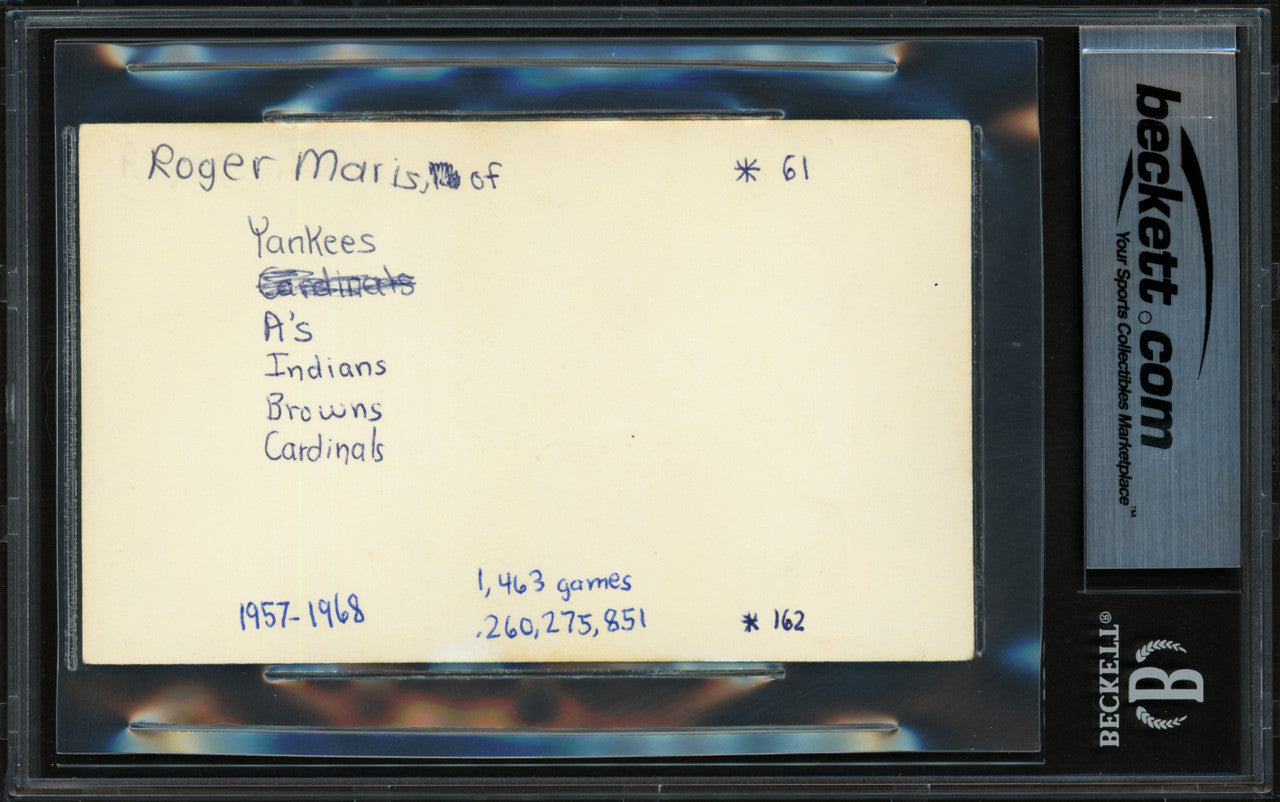 Roger Maris, of
* 61
Yankees
Cardinals
A's
Indians
Browns
Cardinals
1957-1968
1,463 games
.260, 275, 851
* 162
beckett.com
Your Sports Collectibles Marketplace™
BECKETT®
B